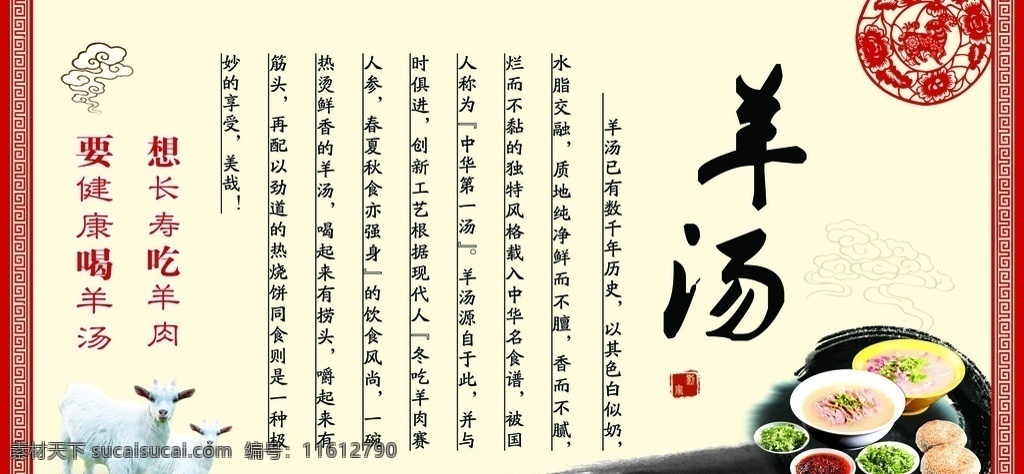 羊汤
羊汤已有数千年历史，以其色白似奶，
水脂交融，质地纯净鲜而不膻，香而不腻，
烂而不黏的独特风格载入中华名食谱，被国
人称为『中华第一汤』。羊汤源自于此，并与
时俱进，创新工艺根据现代人『冬吃羊肉赛
人参，春夏秋食亦强身』的饮食风尚，一碗
热烫鲜香的羊汤，喝起来有捞头，嚼起来有
筋头，再配以劲道的热烧饼同食则是一种极
妙的享受，美哉！
想长寿吃羊肉
要健康喝羊汤
素材天下 sucaisucai.com 编号：11612790